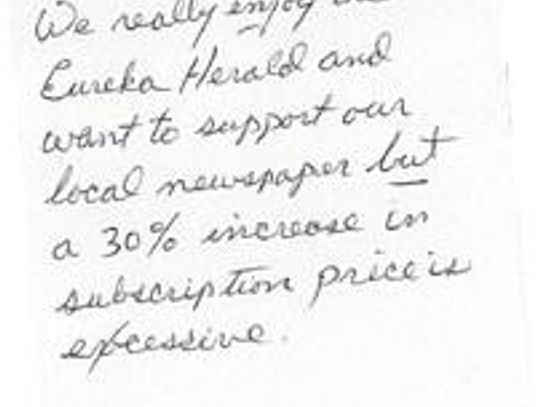 We really enjoy the
Eureka Herald and
want to support our
local newspaper but
a 30% increase in
subscription price is
excessive.